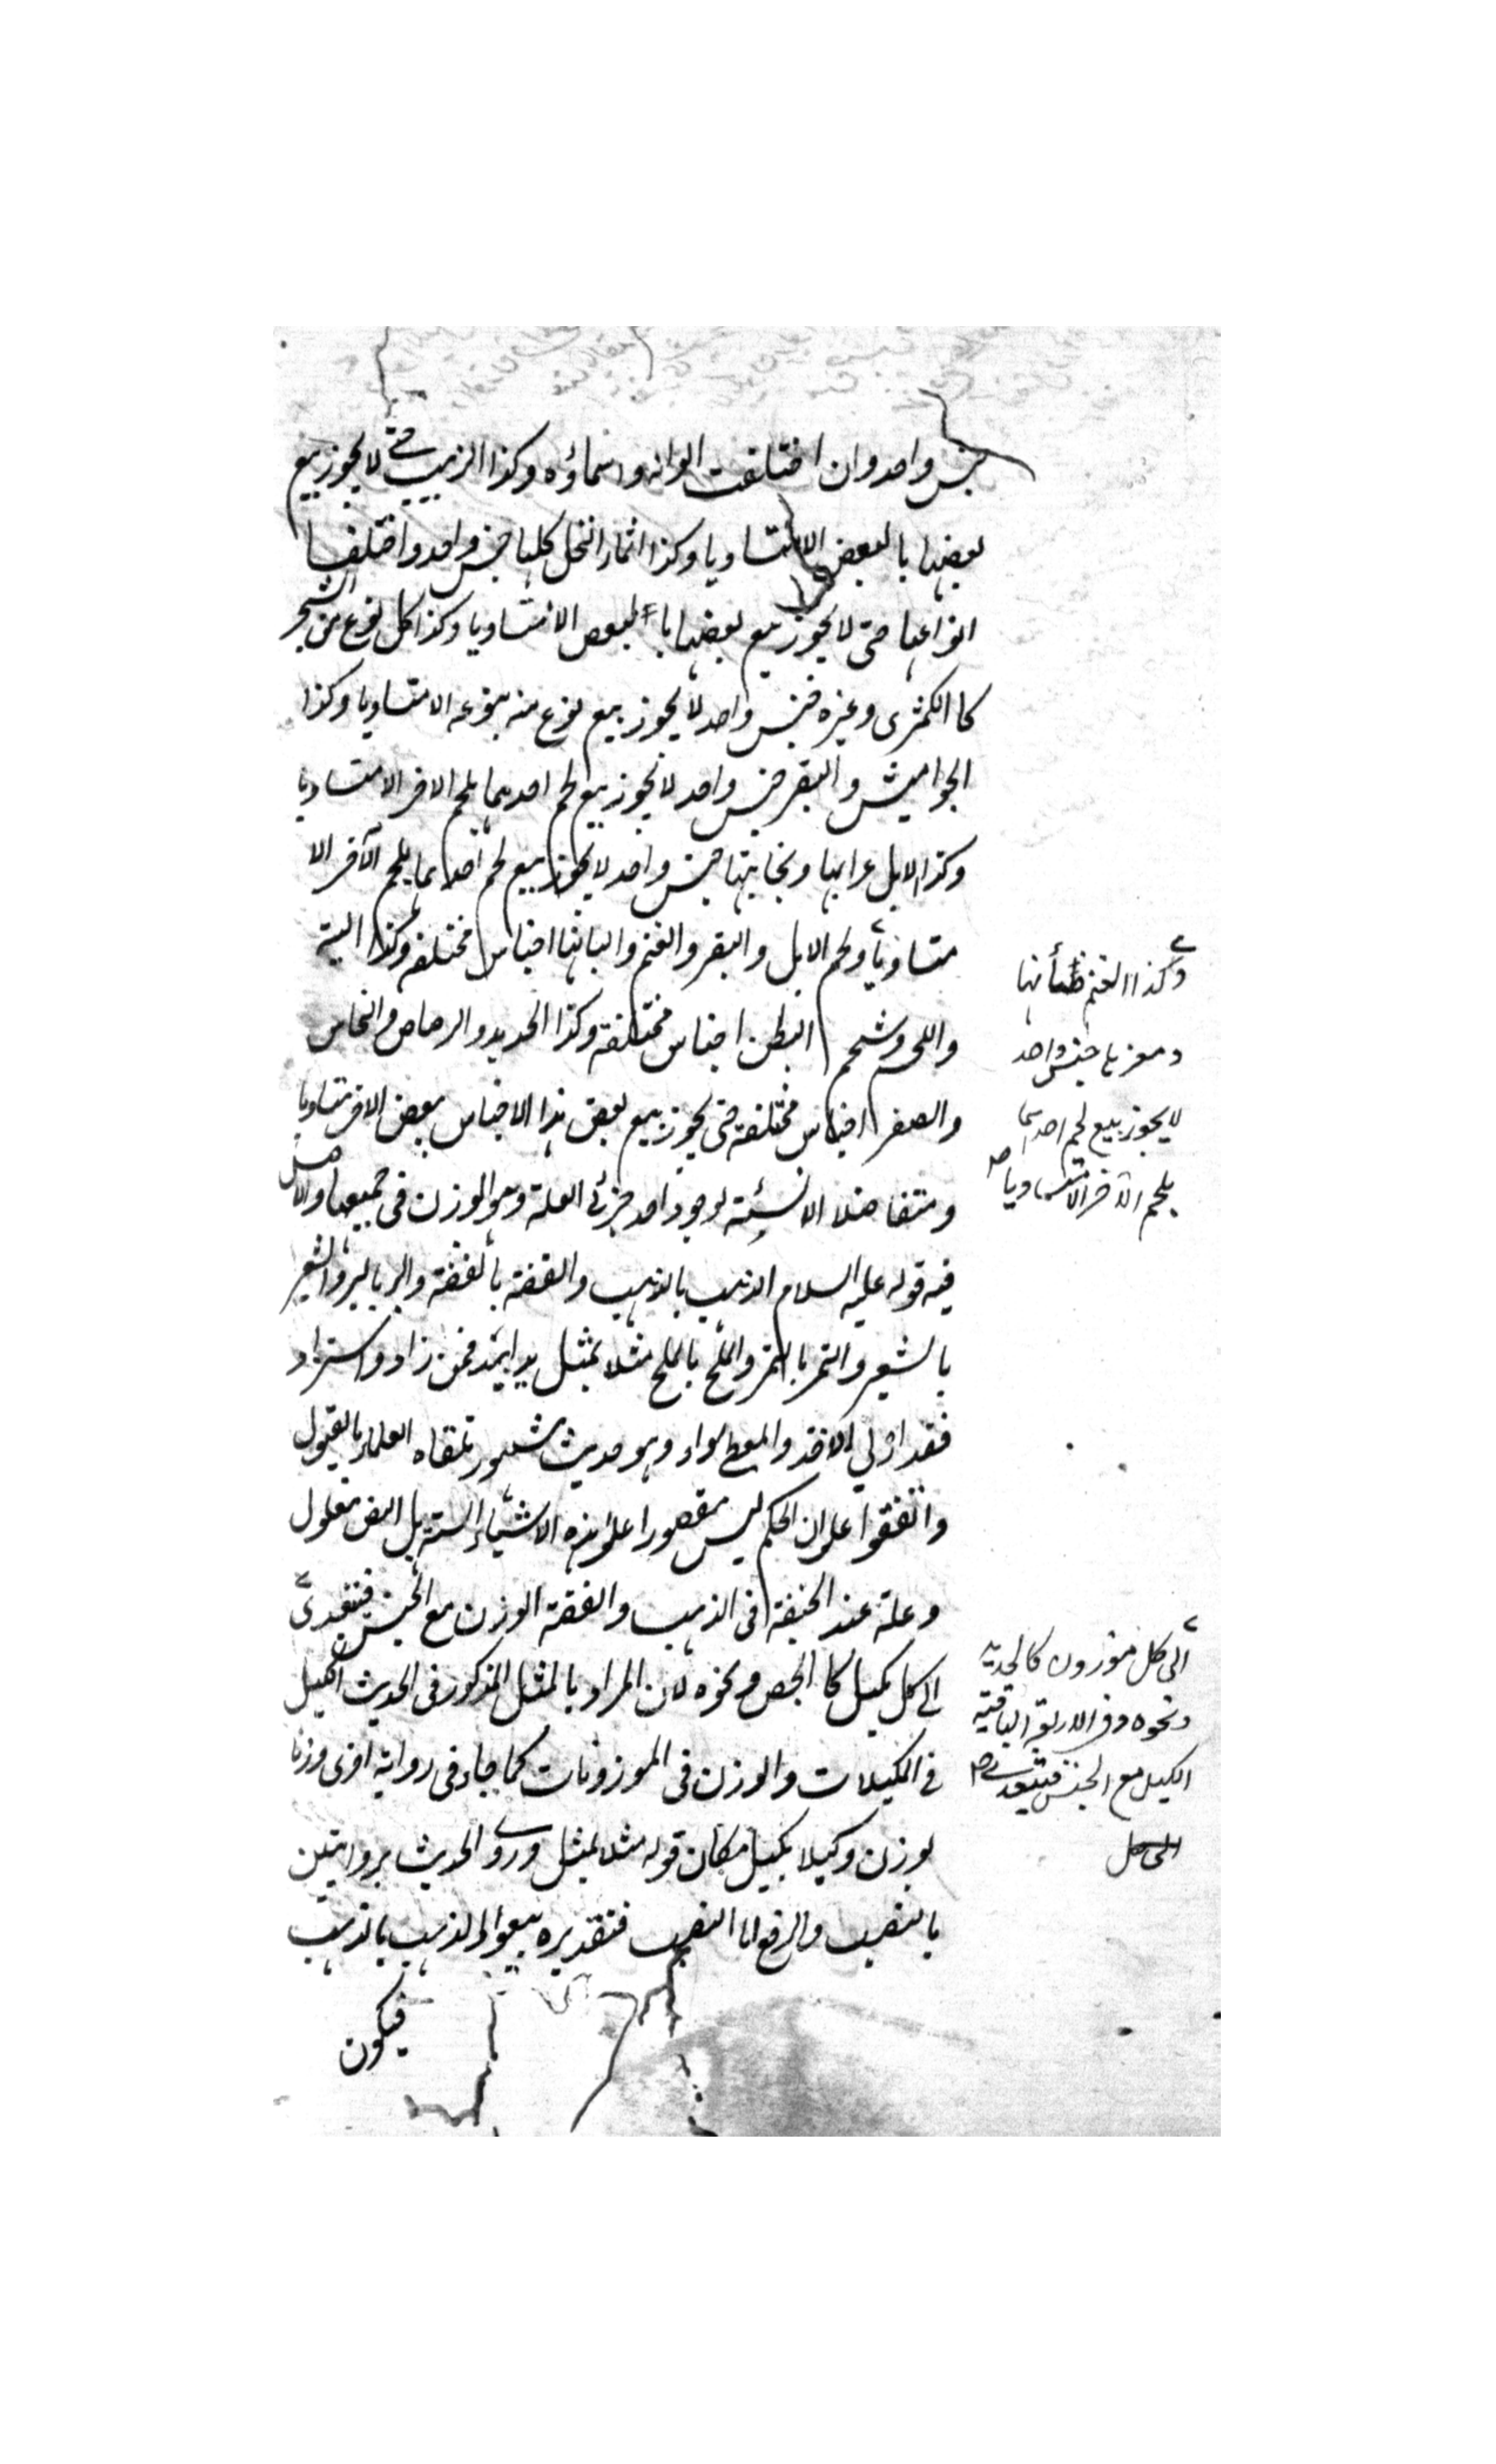 جنس واحد وان اختلفت الوانه واسماؤه وكذا الزبيب حتى لا يجوز بيع
بعضها بالبعض الا متساويا وكذا اثمار النخل كلها جنس واحد واختلف
انواعها حتى لا يجوز بيع بعضها با لبعض الا متساويا وكذا كل نوع من الشجر
كا الكمثرى وغيره فجنس واحد لا يجوز بيع نوع منه بنوعه الا متساويا وكذا
الجواميش والبقر جنس واحد لا يجوز بيع لحم احدهما بلحم الاخر الا متساويا
وكذا الابل عرابها ونجابتها جنس واحد لا يجوز بيع لحم احدهما بلحم الآخر الا
متساويا ولحم الابل والبقر والغنم والبانها اجناس مختلفة وكذا الية
واللحم وشحم البطن اجناس مختلفة وكذا الحديد والرصاص والنحاس
والصفر اجناس مختلفة حتى يجوز بيع بعض هذا الاجناس ببعض الاخر متساويا
ومتفاضلا الا نسئة لوجود احد جزئي العلة وهو الوزن في جميعها والاصل
فيه قوله عليه السلام الذهب بالذهب والفضة بالفضة والبر بالبر والشعير
بالشعير والتمر بالتمر والملح بالملح مثلا بمثل يدا بيد فمن زاد واستزاد
فقد اربي الاخذ والمعطى سواء وهو حديث مشهور تلقاه العلماء بالقبول
واتفقوا على ان الحكم ليس مقصورا على هذه الاشياء الستة بل النص معلول
وعلة عند الحنيفة في الذهب والفضة الوزن مع الجنس فيتعدى
الى كل مكيل كا الجص ونحوه لان المراد بالمثل المذكور في الحديث الكيل
في المكيلات والوزن في الموزونات كما جاء في رواية اخرى وزنا
بوزن وكيلا بكيل مكان قوله مثلا بمثل وروى الحديث بروايتين
بالنصب والرفع اما النصب فتقديره بيعوا الذهب بالذهب
فيكون
وكذا الغنم ضأنها
ومعزها جنس واحد
لا يجوز بيع لحم احدهما
بلحم الآخر الا متساويا صح
الى كل موزون كالحديد
ونحوه وفي الاربعة الباقية
الكيل مع الجنس فيتعدى صح
الى كل